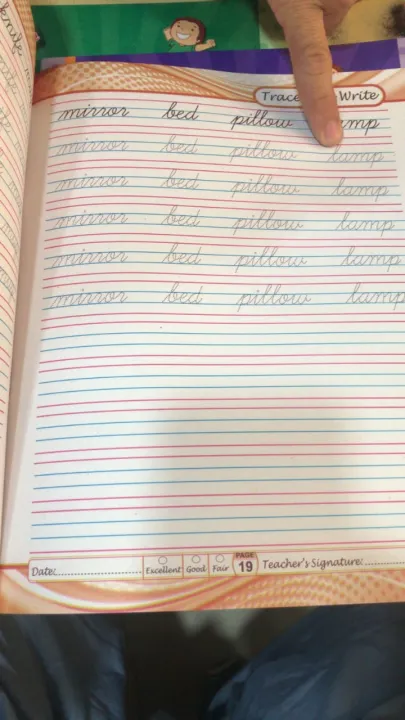 Trace Write
mirror bed pillow lamp
mirror bed pillow lamp
mirror bed pillow lamp
mirror bed pillow lamp
mirror bed pillow lamp
mirror bed pillow lamp
Date: Excellent Good Fair PAGE 19 Teacher's Signature: